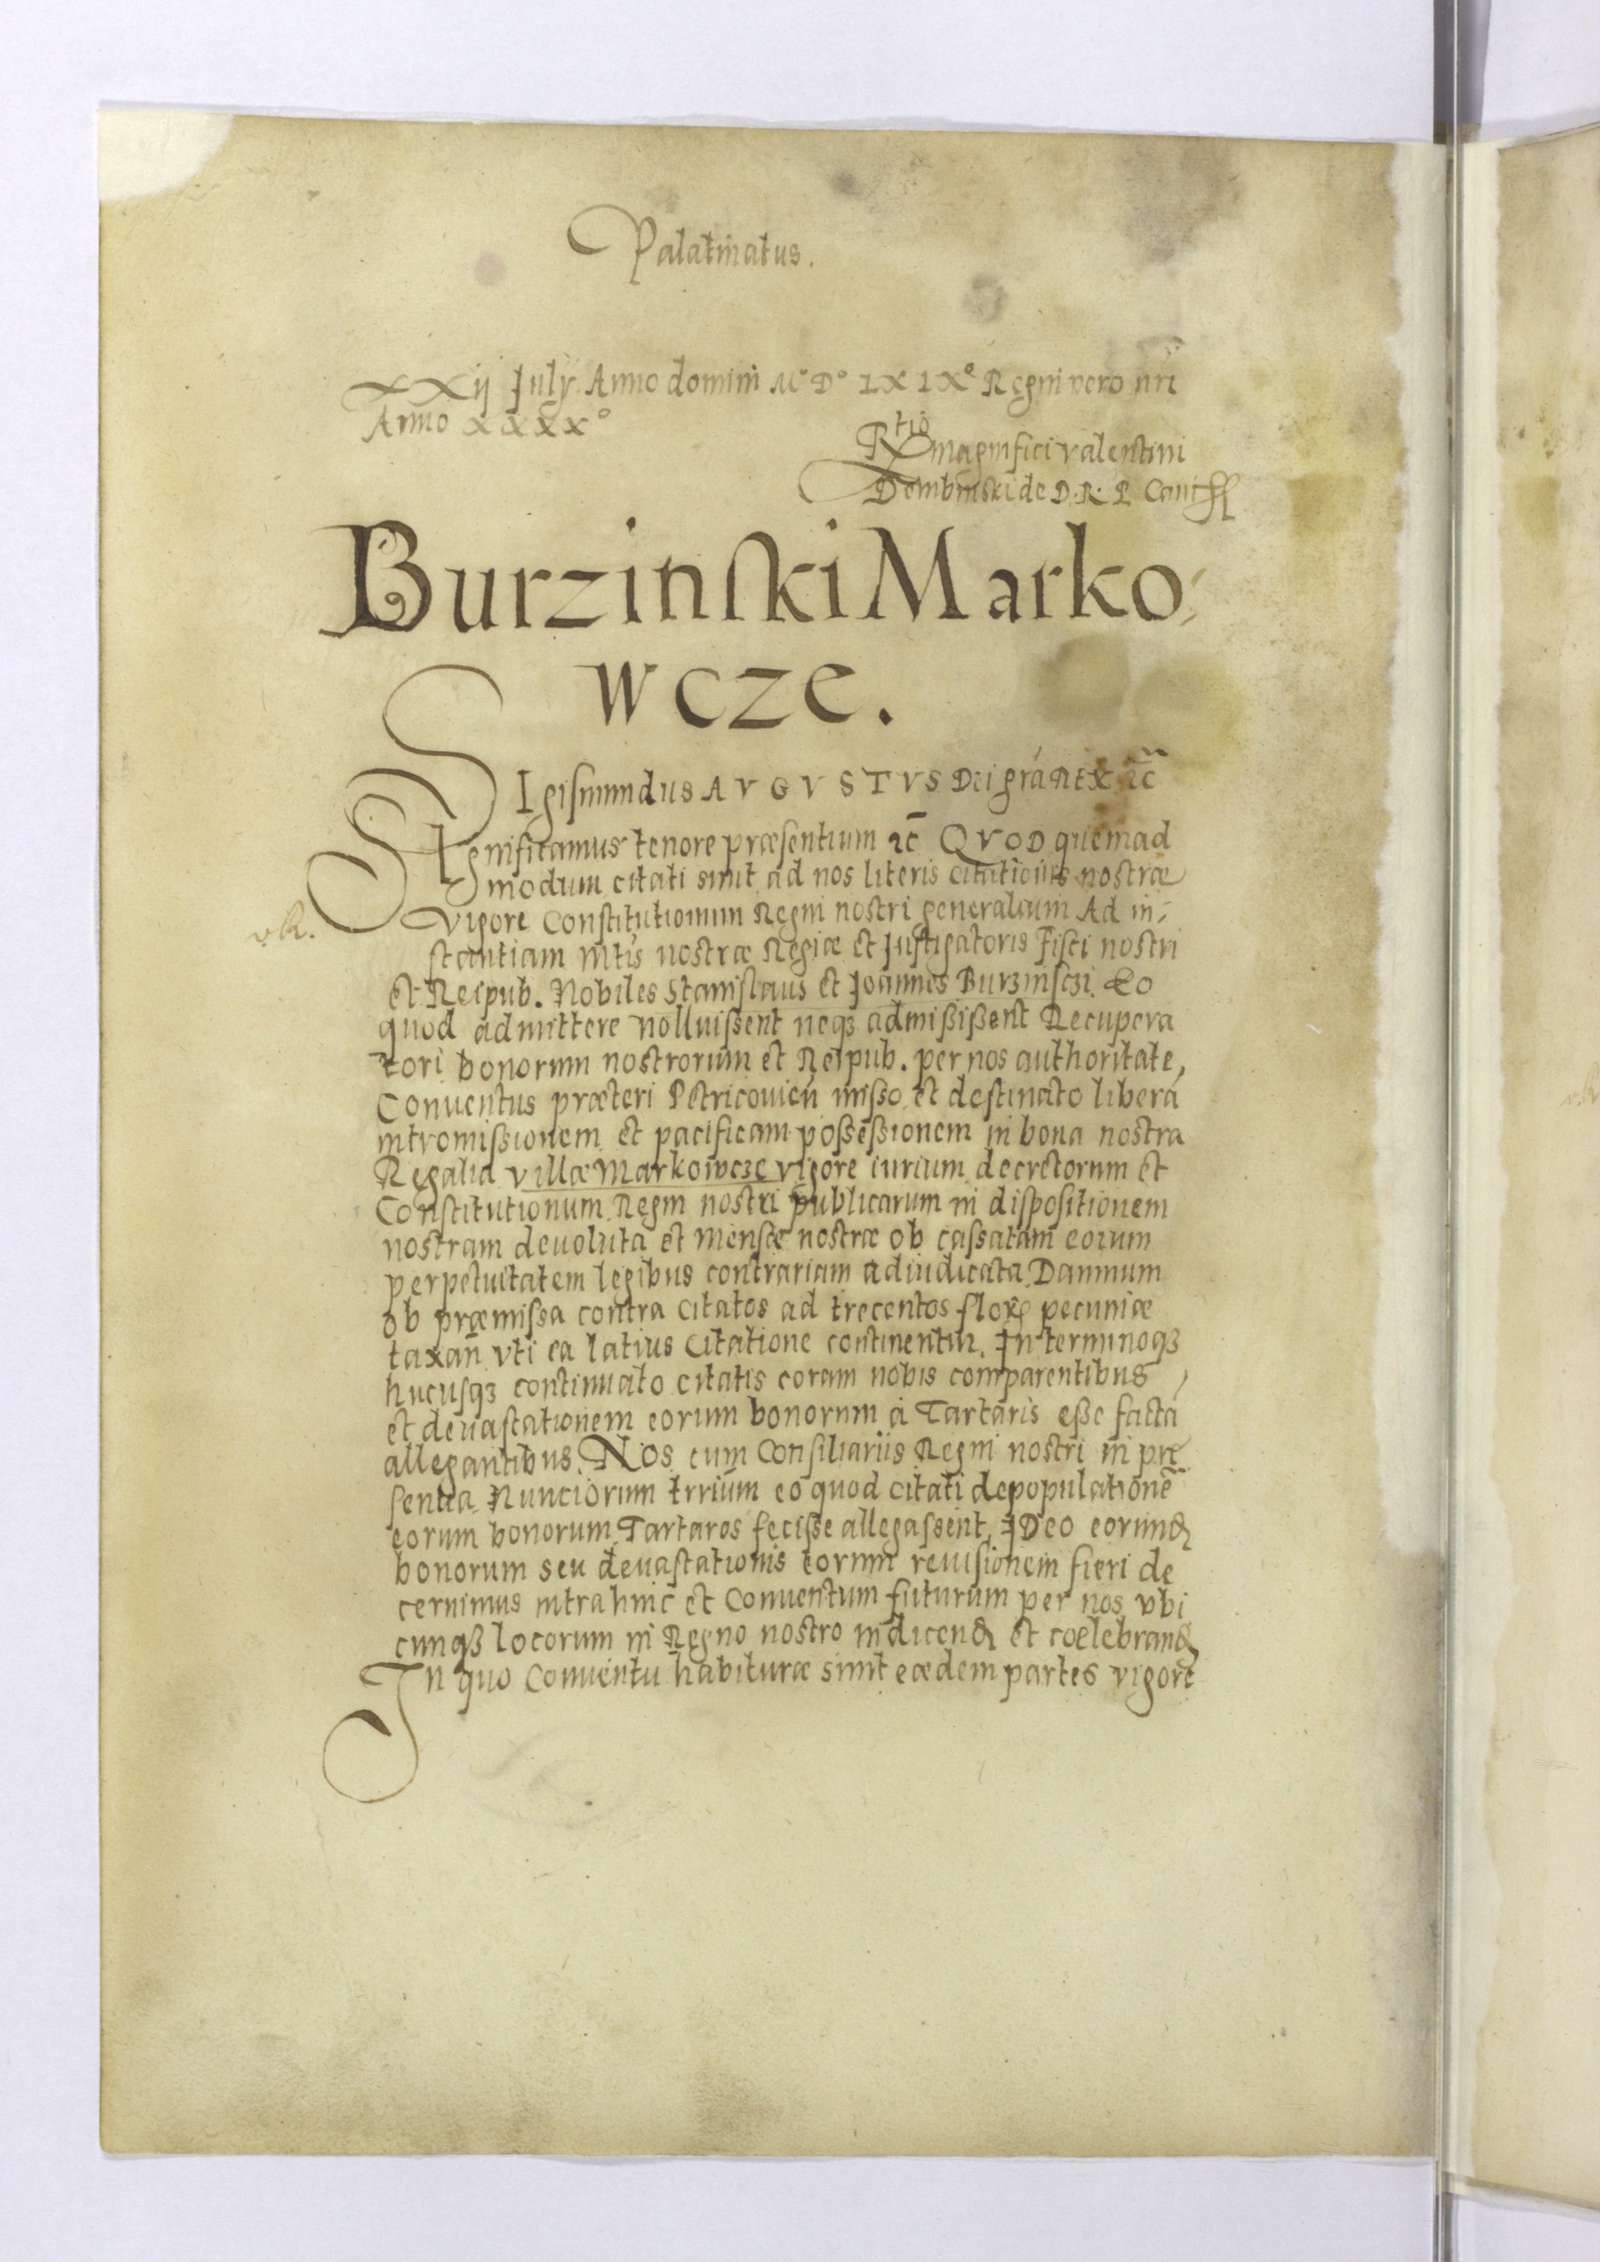 Palatinatus.
XXij July Anno domini M° D° LXIX° Regni vero nri
Anno XXXX°
Rtio magnifici valentini
Dembinski de D. R. P. Canc
Burzinski Marko
wcze.
SIgismundus AVGVSTVS Dei gra Rex rc
SIgnificamus tenore præsentium rc QVOD quemad
modum citati sunt ad nos literis nostræ
Vigore Constitutionum Regni nostri generalium Ad in
stantiam Mtis nostræ Regiæ et Instigatoris Fisci nostri
v R.
et Reipub. Nobiles Stanislaus et Joannes Burzinsczi. Eo
quod admittere nolluissent neq3 admisissent Recupera
tori bonorum nostrorum et Reipub. per nos authoritate,
Conuentus præteri Petricouien misso et destinato liberá
intromissionem et pacificam possessionem in bona nostra
Regalia villæ Markowcze vigore iurium decretorum et
Constitutionum Regni nostri publicarum in dispositionem
nostram deuoluta et Mensæ nostræ ob cassatam eorum
perpetuitatem legibus contrariam adiudicata Damnum
ob præmissa contra citatos ad trecentos flore pecuniæ
taxañ vti ea latius Citatione continentur. In terminoq3
hucusq3 continuato citatis coram nobis comparentibus,
et deuastationem eorum bonorum á Tartaris esse factá
allegantibus. Nos cum Consiliariis Regni nostri in præ
sentia Nunciorum trrium eo quod citati depopulationẽ
eorum bonorum Tartaros fecisse allegassent, IDeo eorund
bonorum seu deuastationis eorum reuisionem fieri de
cernimus intra hinc et Conuentum futurum per nos vbi
cunq3 locorum in Regno nostro indicend et cœlebrand
In quo Conuentu habituræ sunt eædem partes vigore